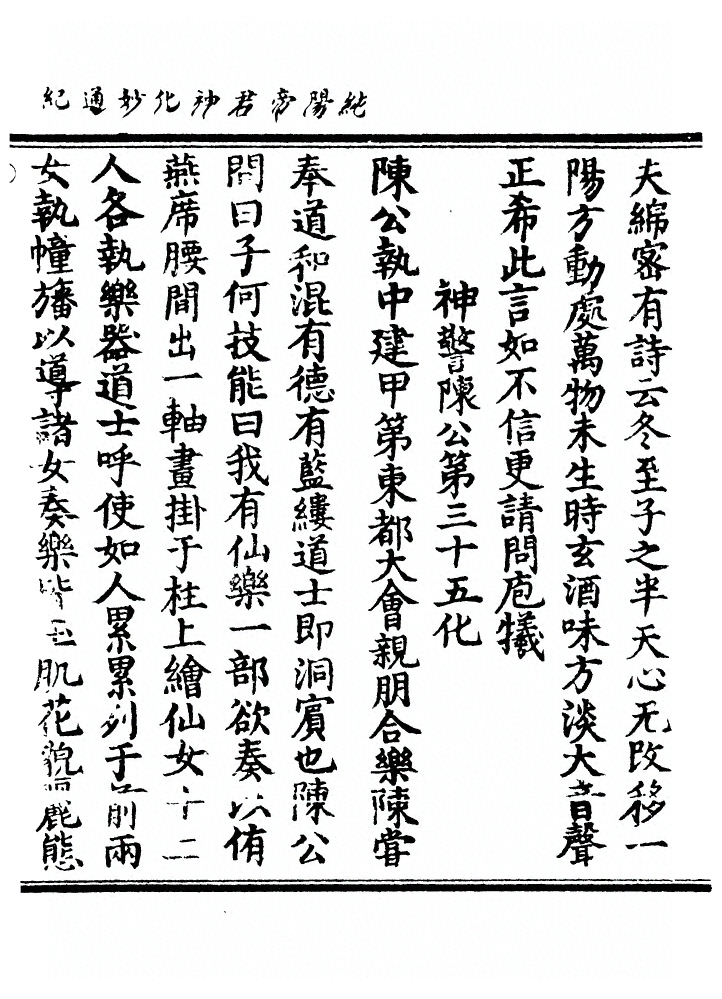 純陽帝君神化妙通紀
夫綿密有詩云冬至子之半天心无改移一
陽方動處萬物未生時玄酒味方淡大音聲
正希此言如不信更請問庖犧
神警陳公第三十五化
陳公執中建甲第東都大會親朋合樂陳嘗
奉道和混有德有藍縷道士即洞賓也陳公
問曰子何技能曰我有仙樂一部欲奏以侑
燕席腰間出一軸畫掛于柱上繪仙女十二
人各執樂器道士呼使如人累累列于前兩
女執幢旛以導諸女奏樂皆玉肌花貌麗態